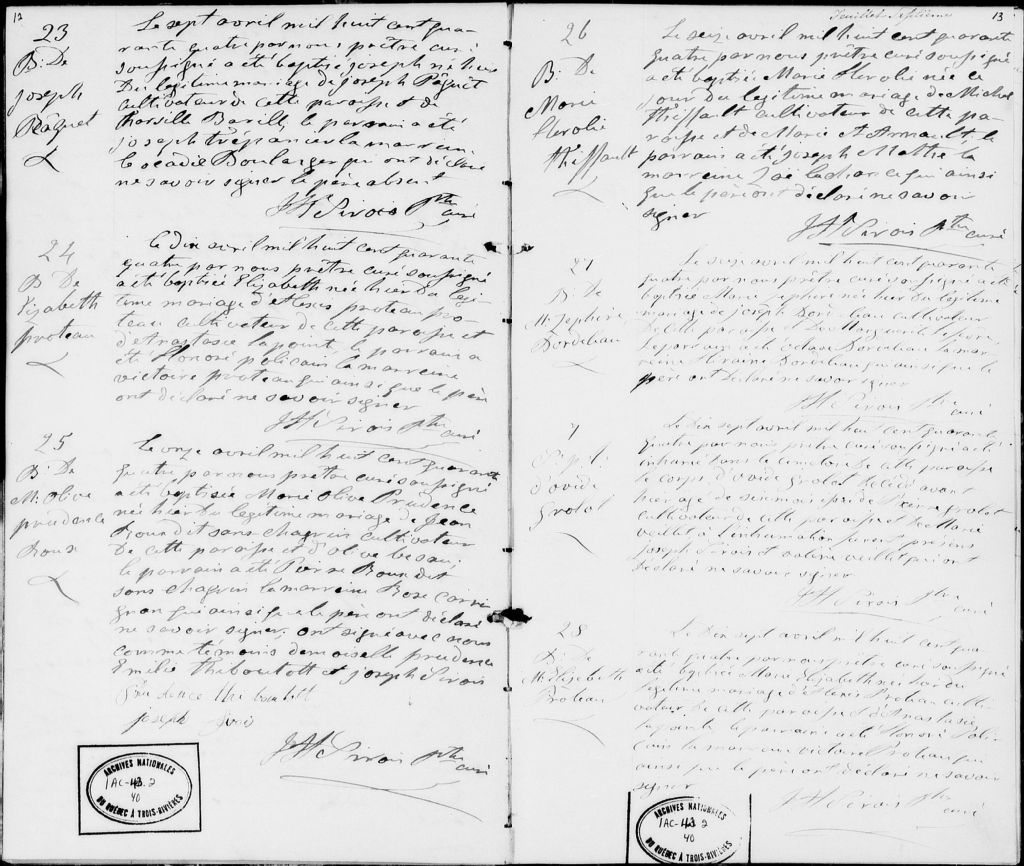 12
23
B. De
joseph
Pâquet
Le sept avril mil huit cent qua-
rante quatre par nous prêtre curé
soussigné a été baptisé joseph né hier
Du légitime mariage de joseph Pâquet
cultivateur de cette paroisse et de
Baril le parrain a été
joseph trépanier la marraine
Boulanger qui ont déclaré
ne savoir signer le père absent
JH Sirois Ptre
curé
24
B De
Elizabeth
proteau
Le dix avril mil huit cent quarante
quatre par nous prêtre curé soussigné
a été baptisée Elizabeth née hier du légi-
time mariage d'Alexis proteau pro-
teau cultivateur de cette paroisse et
d'Anastasie lapointe le parrain a
été Honoré policain la marraine
victoire proteau qui ainsi que le père
ont déclaré ne savoir signer
JH Sirois Ptre
curé
25
B De
M. Olive
prudence
Roux
Le onze avril mil huit cent quarante
quatre par nous prêtre curé soussigné
a été baptisée Marie Olive Prudence
née hier du légitime mariage de Jean
Roux dit sans chagrin cultivateur
De cette paroisse et d'olive
le parrain a été Pierre Roux dit
sans chagrin la marraine Rose Carri
gnan qui ainsi que le père ont déclaré
ne savoir signer. ont signé avec nous
comme témoins demoiselle prudence
Emilie Thiboutott et joseph Sirois
joseph
JH Sirois Ptre
curé
ARCHIVES NATIONALES
1AC-43 2
40
DU QUÉBEC À TROIS-RIVIÈRES
feuillet Septième
13
26
B. De
Marie
Thiffault
Le seize avril mil huit cent quarante
quatre par nous prêtre curé soussigné
a été baptisée Marie née ce
jour du légitime mariage de Michel
Thiffault cultivateur de cette pa-
roisse et de Marie St Arnault, le
parrain a été joseph Mathé la
marraine qui ainsi
que le père ont déclaré ne savoir
signer
JH Sirois Ptre
curé
27
B. De
M. Zephire
Bordeleau
Le seize avril mil huit cent quarante
quatre par nous prêtre curé soussigné a été
baptisée Marie Zephire née hier du légitime
mariage de joseph Bordeleau cultivateur
de cette paroisse et De Marguerite
le parrain a été Bordeleau la mar-
raine Bordeleau qui ainsi que le
père ont déclaré ne savoir signer
JH Sirois Ptre
curé
7
d'ovide
Grolol
Le Dix sept avril mil huit cent quarante
quatre par nous prêtre curé soussigné a été
inhumé dans le cimetière de cette paroisse
le corps d'ovide décédé avant
hier agé de six mois de Pierre
cultivateur de cette paroisse et de Marie
veillet à l'inhumation furent présens
joseph Sirois et veillet qui ont
déclaré ne savoir signer
JH Sirois Ptre
curé
28
B. De
M. Elizabeth
Prôteau
Le Dix sept avril mil huit cent qua-
rante quatre par nous prêtre curé soussigné
a été baptisée Marie Elizabeth née hier du
légitime mariage d'Alexis Proteau culti-
vateur de cette paroisse et d'Anastasie
lapointe le parrain a été Honoré Poli-
cain la marraine qui
ainsi que le père ont déclaré ne savoir
signer
JH Sirois Ptre
curé
ARCHIVES NATIONALES
1AC-43 2
40
DU QUÉBEC À TROIS-RIVIÈRES